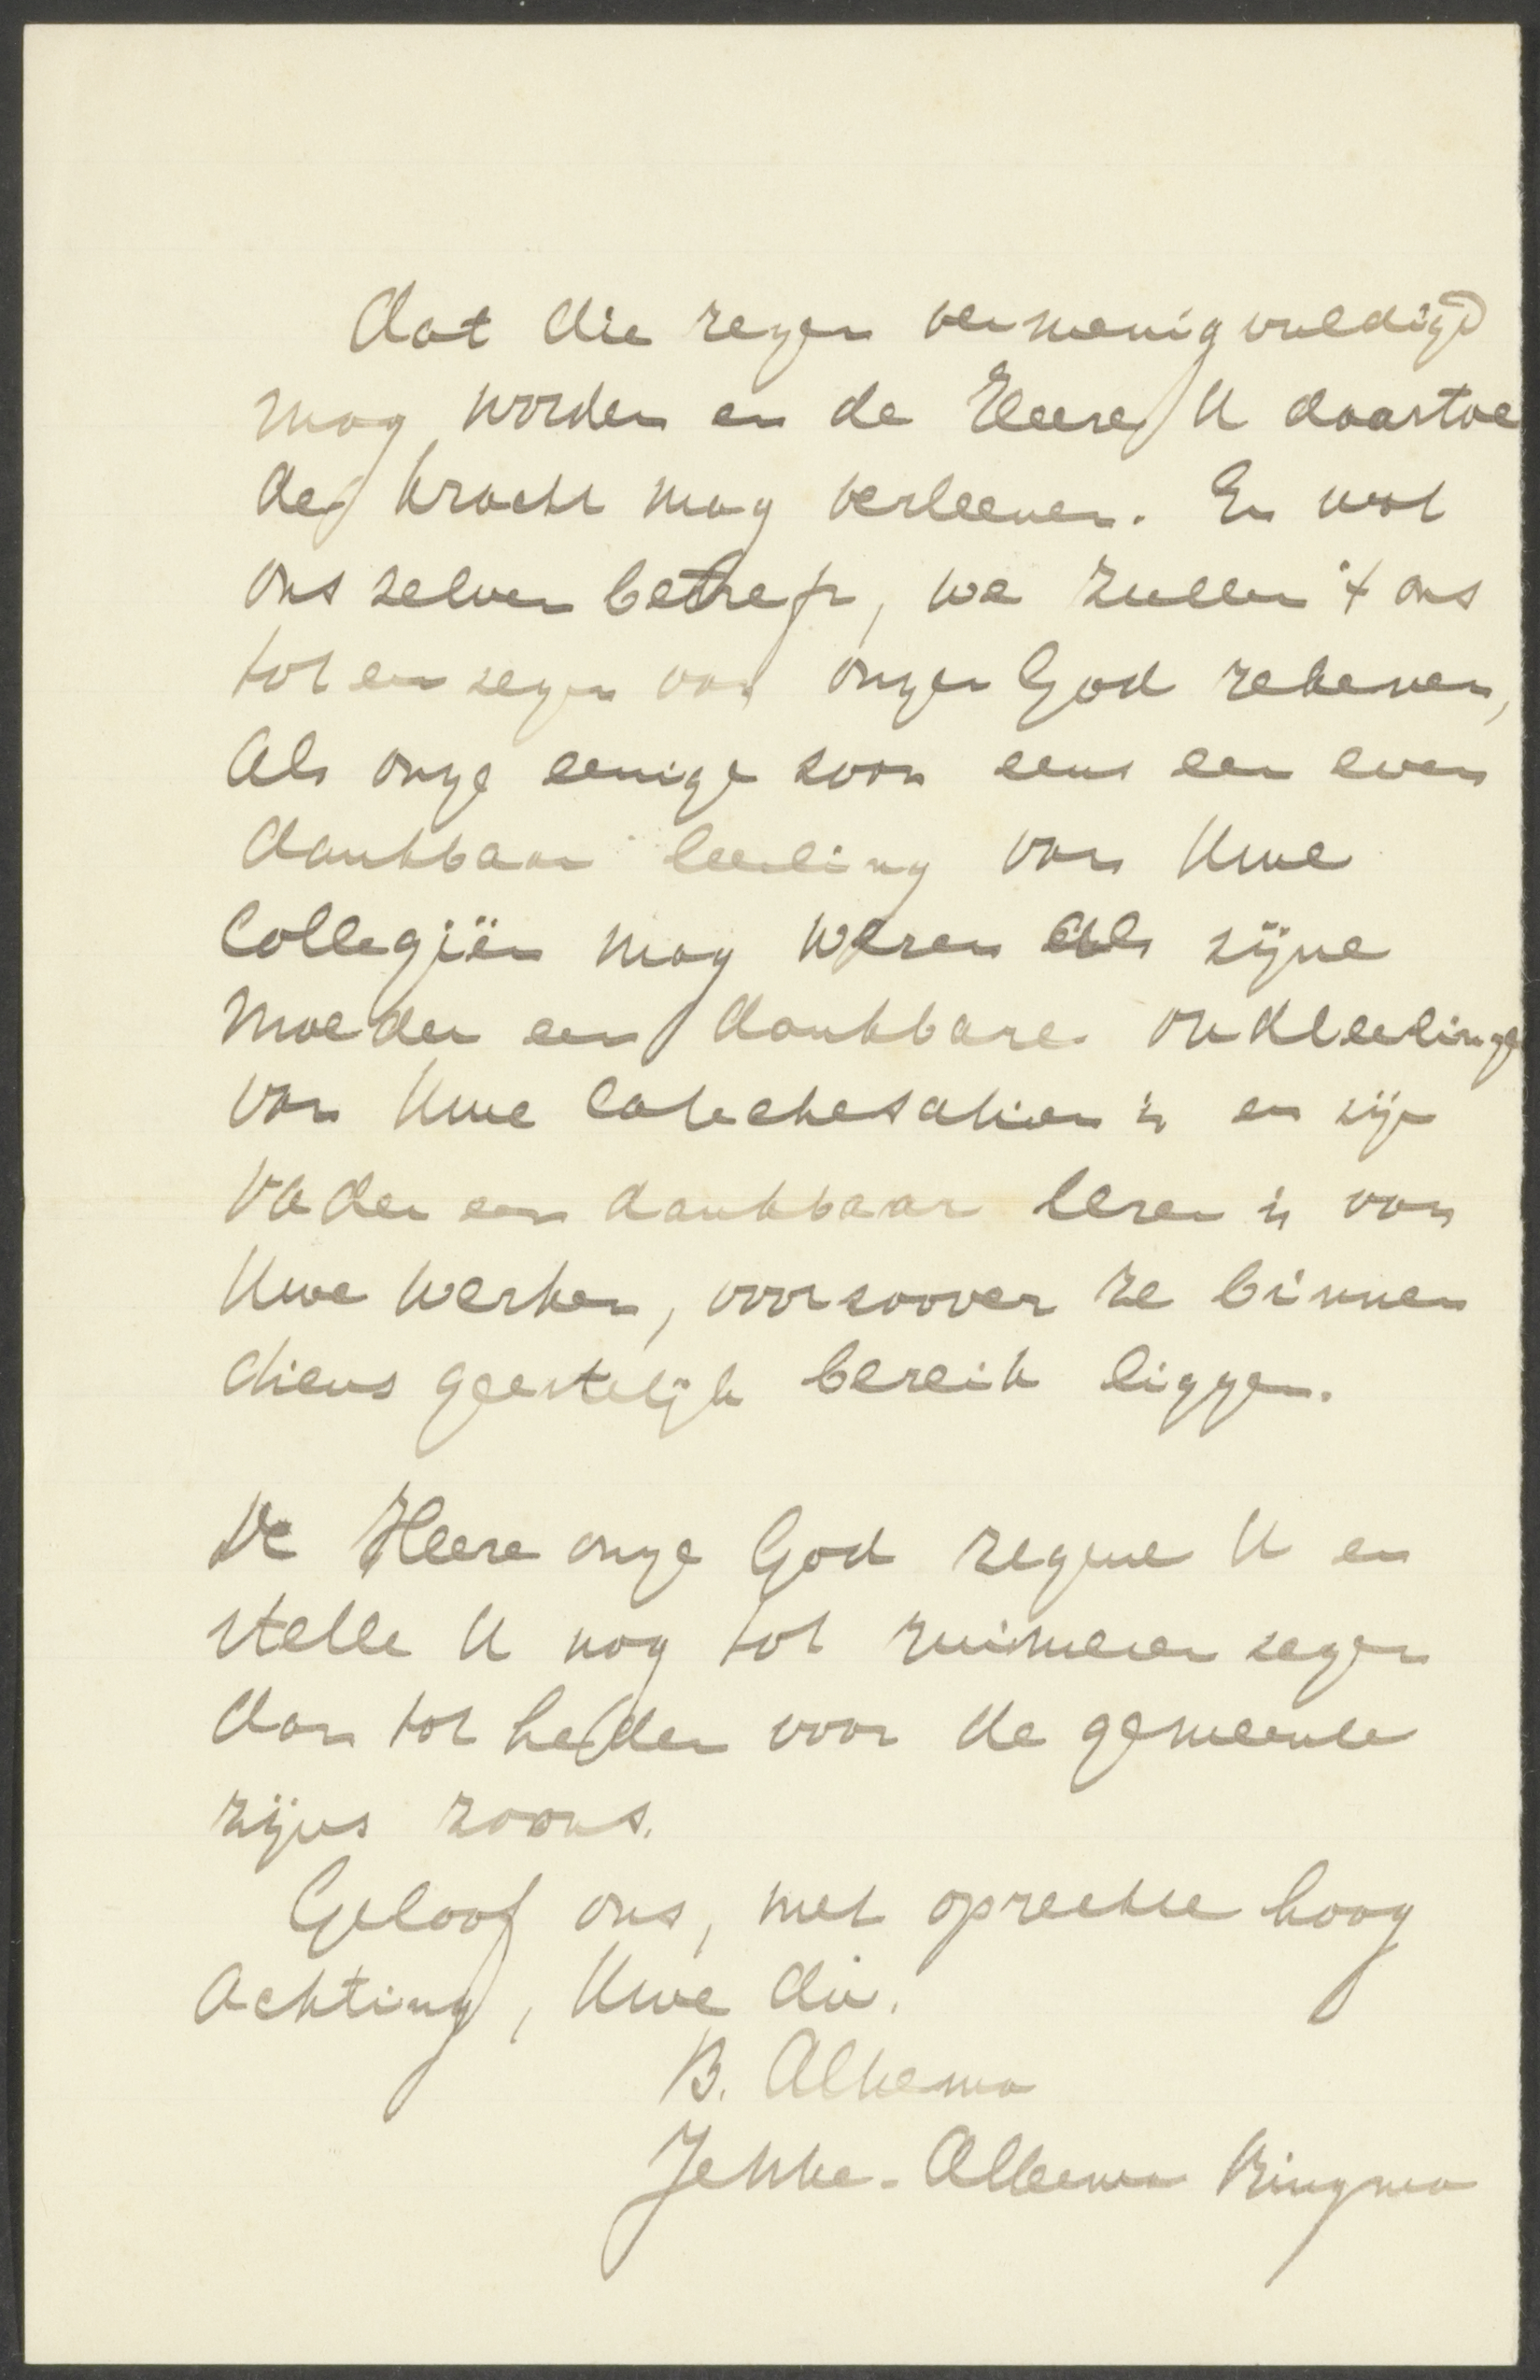 Dat die zegen vermenigvuldigd
mag worden en de Heere U daartoe
de kracht mag verleenen. En wat
ons zelven betreft, we zullen 't ons
tot een zegen van onzen God rekenen,
Als onze eenige zoon eens een even
dankbaar leerling van Uwe
Collegiën mag wezen als zijne
Moeder een dankbare oudleerlinge
van Uwe catechesatien is en zijn
Vader een dankbaar lezer is van
Uwe werken, voorzoover ze binnen
diens geestelijk bereik liggen.
De Heere onze God zegene U en
stelle U nog tot ruimeren zegen
dan tot heden voor de gemeente
zijns zoons.
Geloof ons, met oprechte hoog
Achting, Uwe dw.
B. Alkema
Jekke-Alkema Ringma